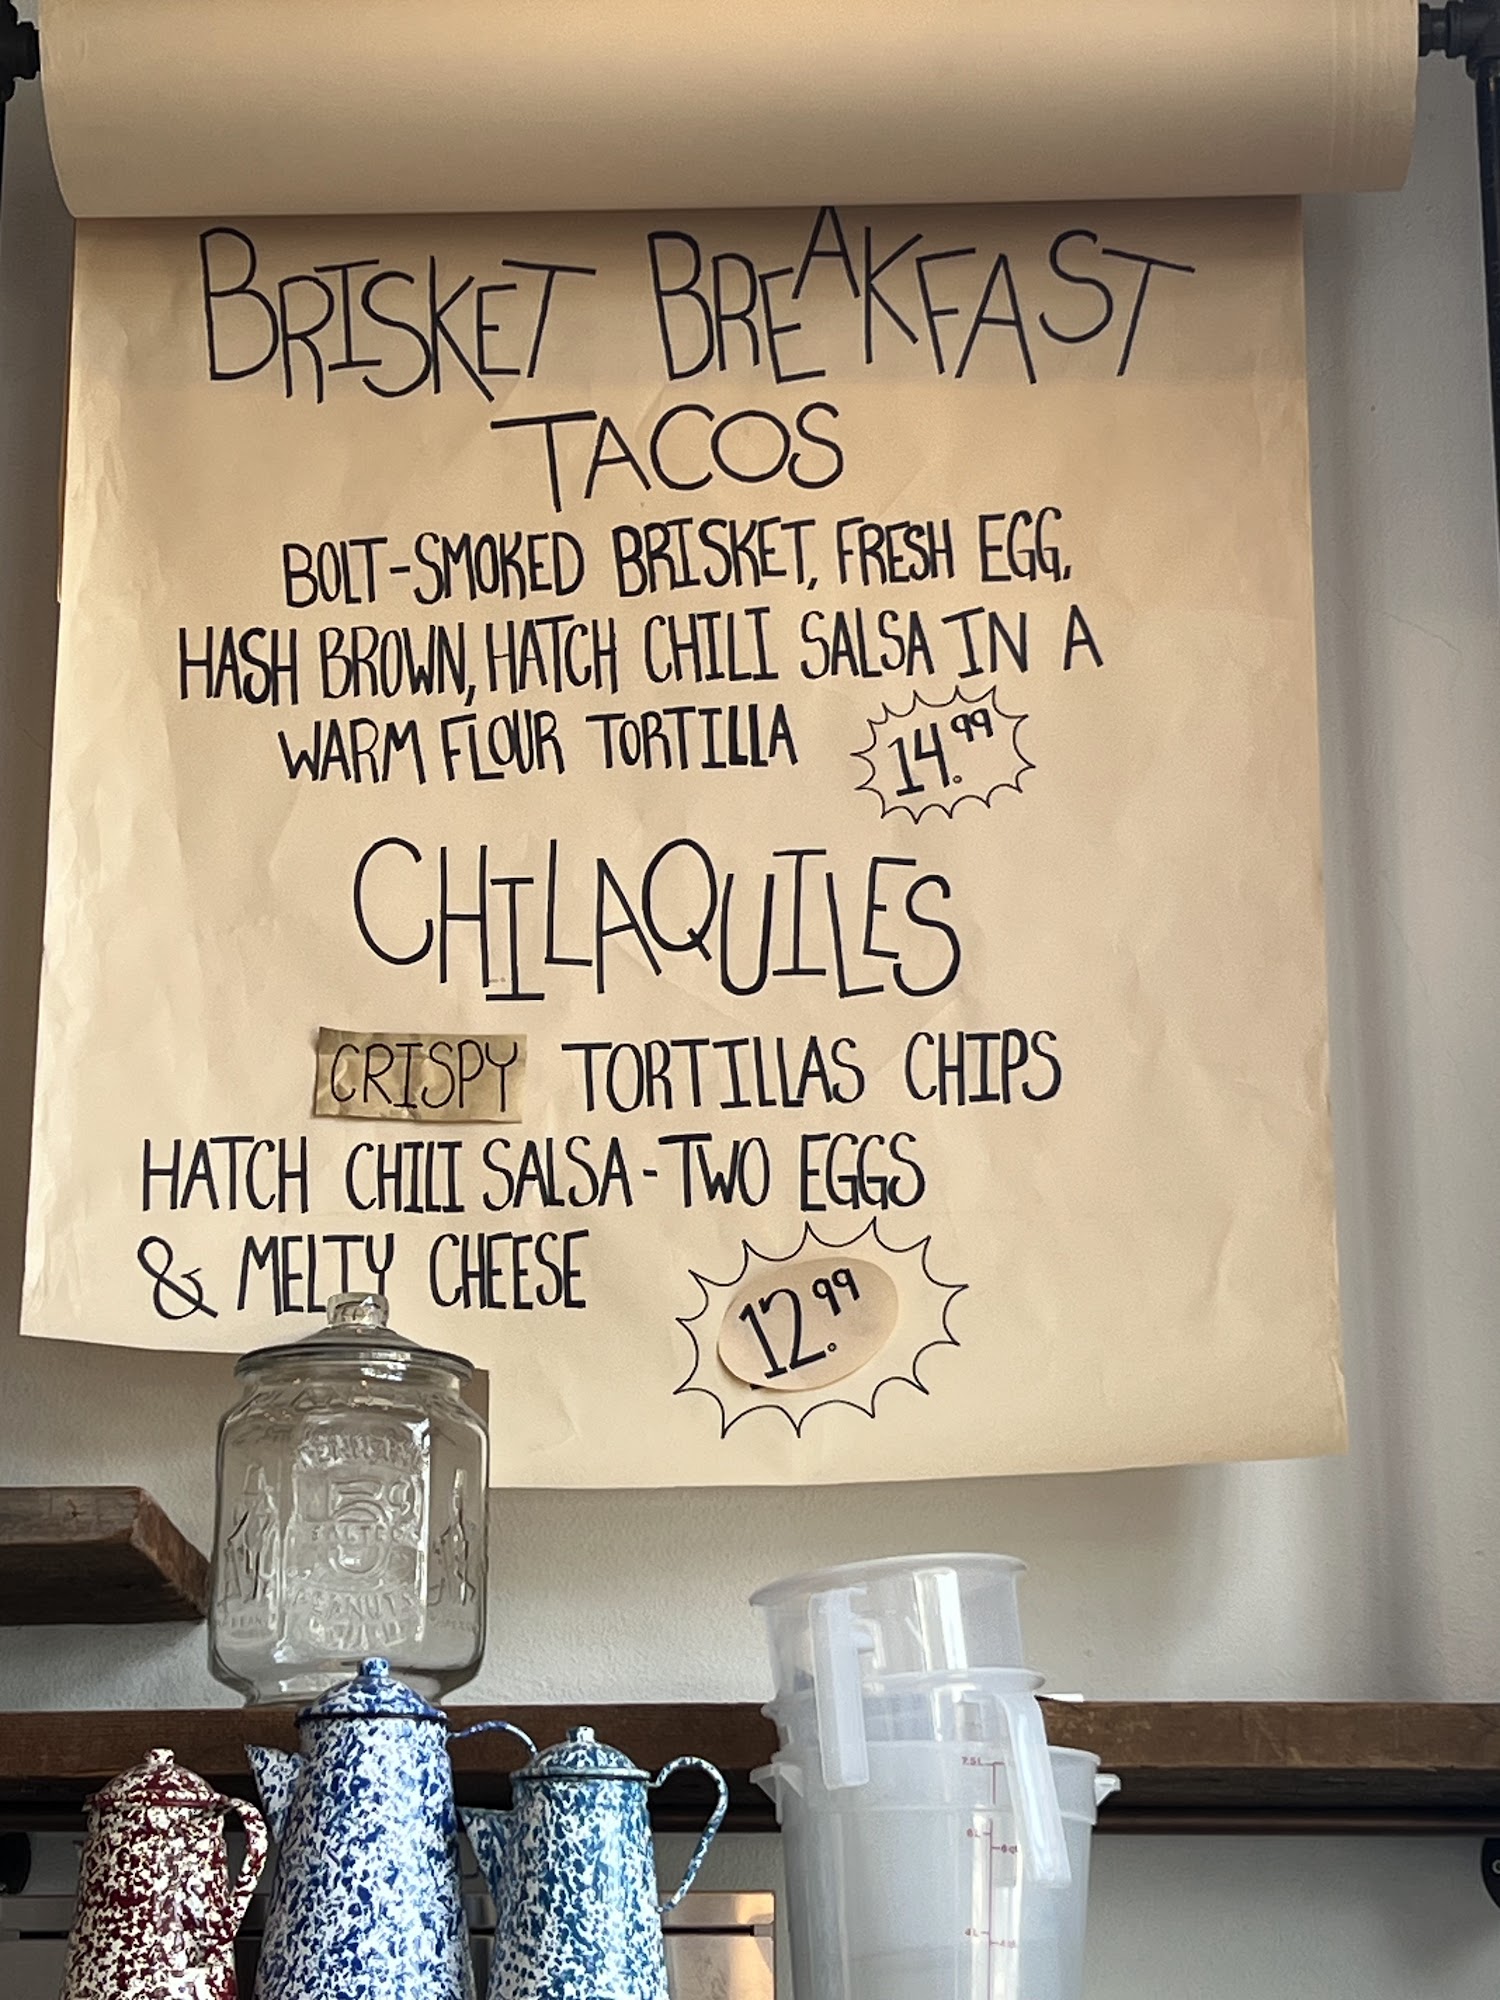 BRISKET BREAKFAST
TACOS
BOLT-SMOKED BRISKET, FRESH EGG,
HASH BROWN, HATCH CHILI SALSA IN A
WARM FLOUR TORTILLA 14.99
CHILAQUILES
CRISPY TORTILLAS CHIPS
HATCH CHILI SALSA-TWO EGGS
& MELTY CHEESE
12.99
5¢
SALTED
PEANUTS
7.5L
6L
4L